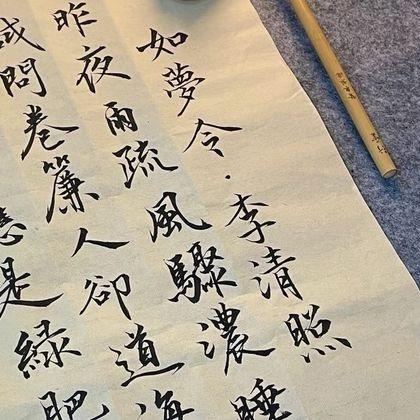 如夢令·李清照
昨夜雨疏風驟濃睡
試問卷簾人卻道海
應是綠肥